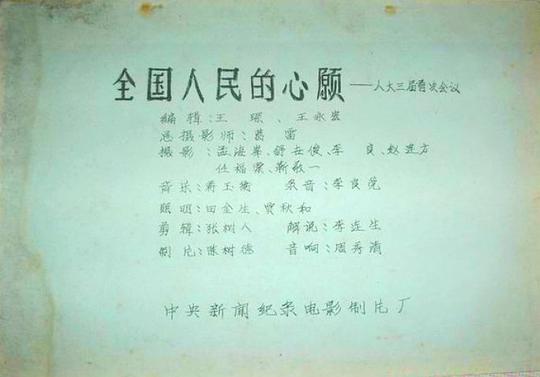 全国人民的心愿——人大三届首次会议
编辑:王 琛、王永宏
总摄影师:葛雷
摄影:孟海峯、舒世俊、李 良、赵进方
任福棠、靳敬一
音乐:蒋玉衡 录音:李良茂
照明:田金生、贾秋和
剪辑:张树人 解说:李连生
制片:陈树德 音响:周秀清
中央新闻纪录电影制片厂